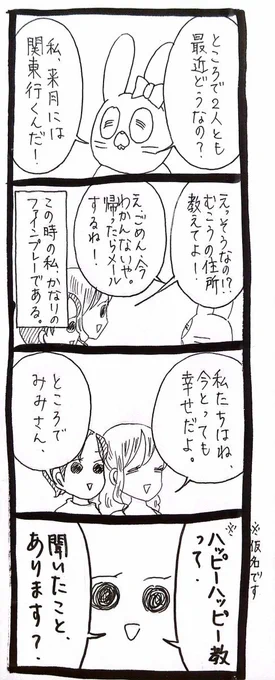 ところで2人とも
最近どうなの?
私、来月には
関東行くんだ!
えっそうなの!?
むこうの住所
教えてよー!
え、ごめん、今
わかんないや。
帰ったらメール
するね!
この時の私、かなりの
ファインプレーである。
私たちはね、
今とっても
幸せだよ。
ところで
みみさん、
※仮名です
※
ハッピーハッピー教
って、
聞いたこと、
あります?